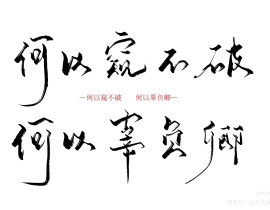 何以窥不破
—何以窥不破 何以辜负卿—
何以辜负卿